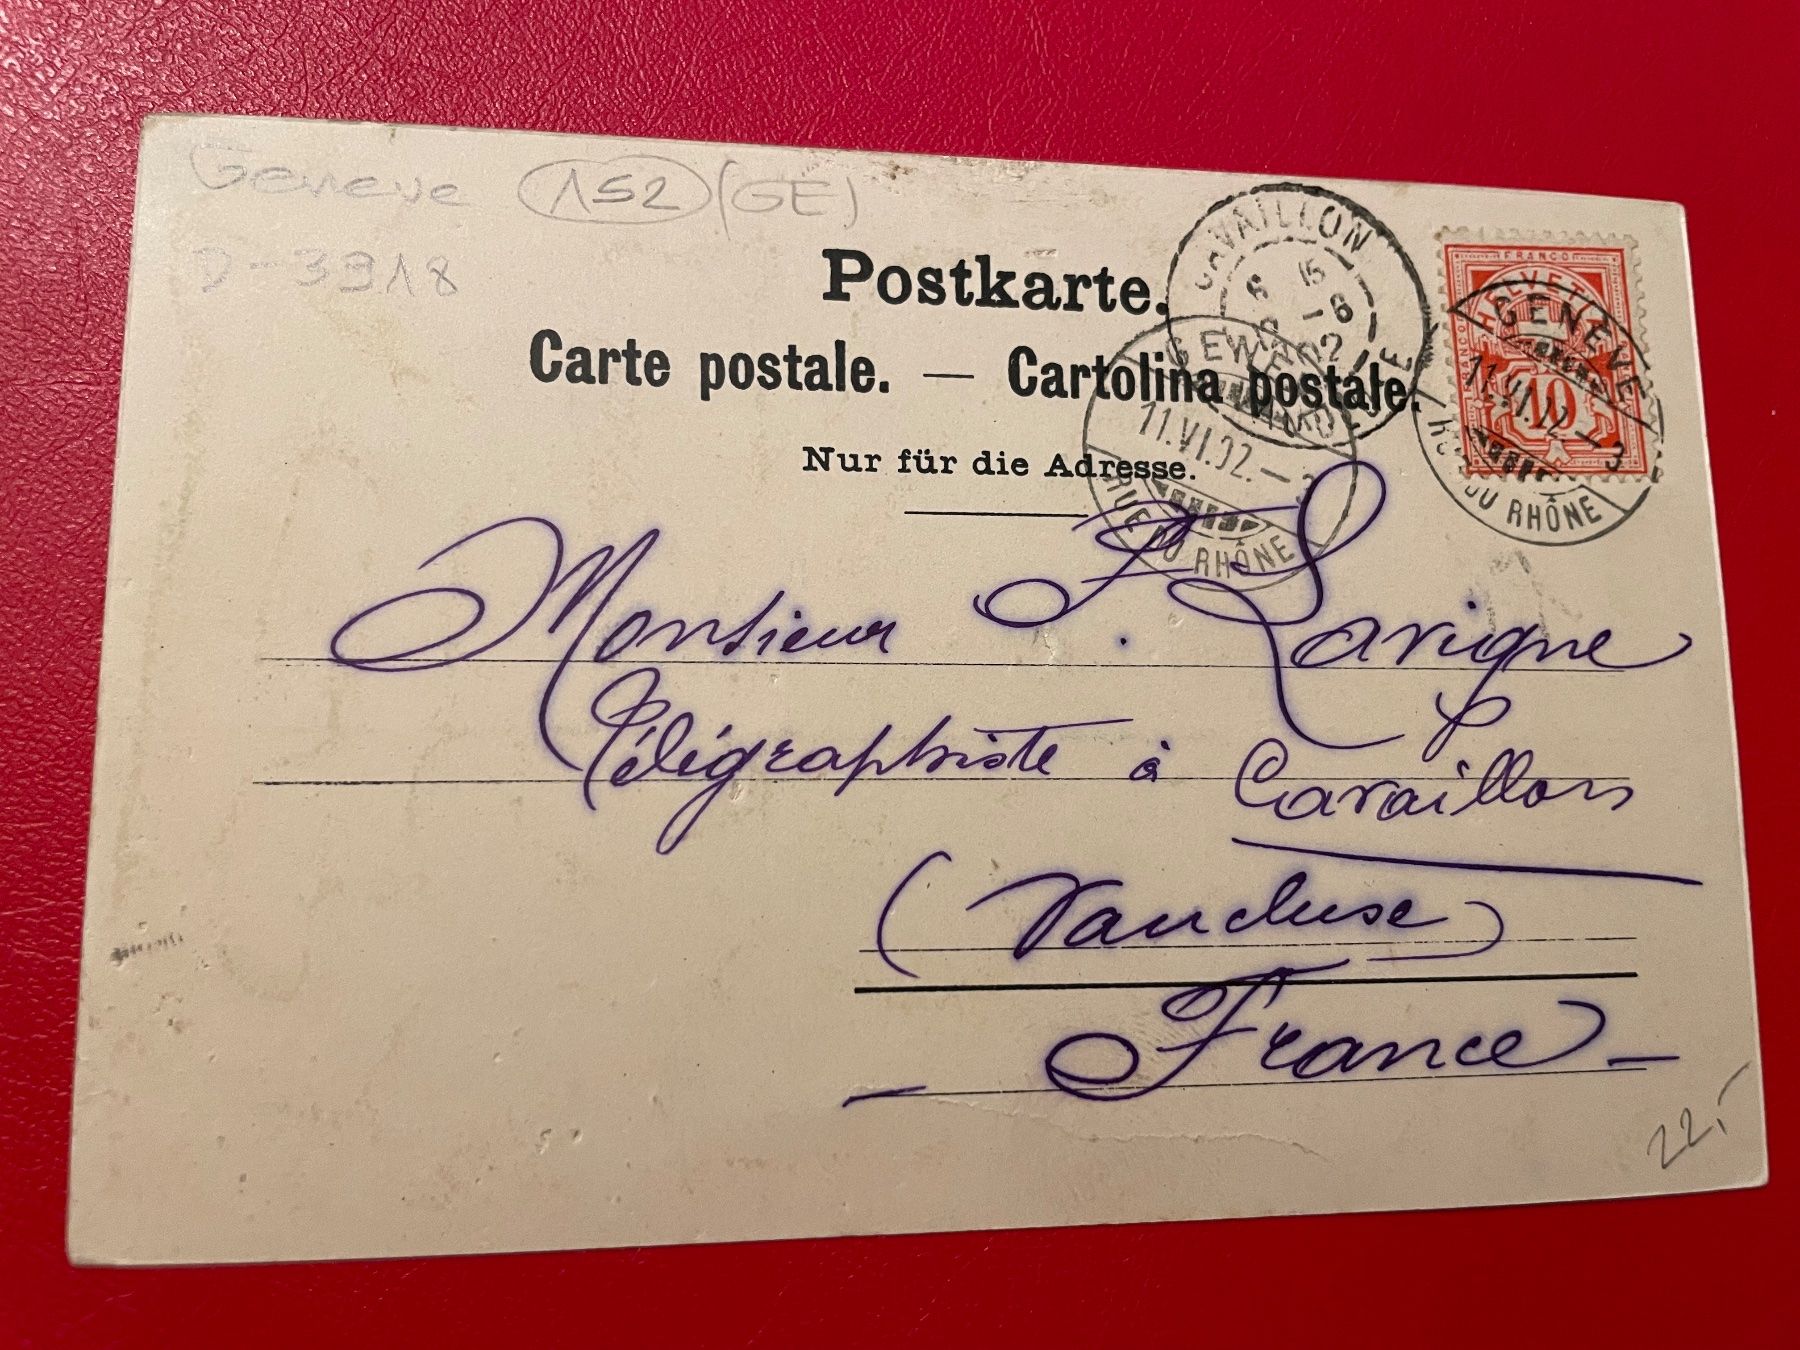 Geneve 152 (GE)
D-3318
Postkarte.
Carte postale. — Cartolina postale.
Nur für die Adresse.
CAVAILLON
FRANCO
HELVETIA
10
GENÈVE
11.VI.02.–3
RUE DU RHÔNE
GENÈVE
11.VI.02.–3
RUE DU RHÔNE
Monsieur F. Lavigne
Télégraphiste à Cavaillon
(Vaucluse)
France –
22,-